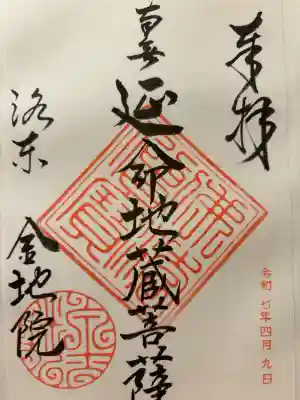 奉拝
南無
延命地蔵菩薩
洛東
金地院
令和七年四月九日